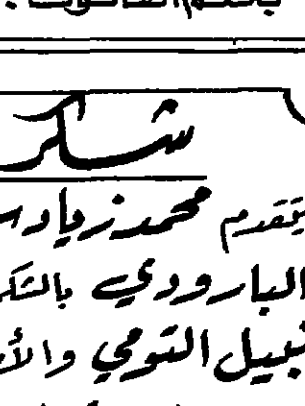 شكر
يتقدم محمد زياد
البارودي بالشكر
نبيل التومي والأ